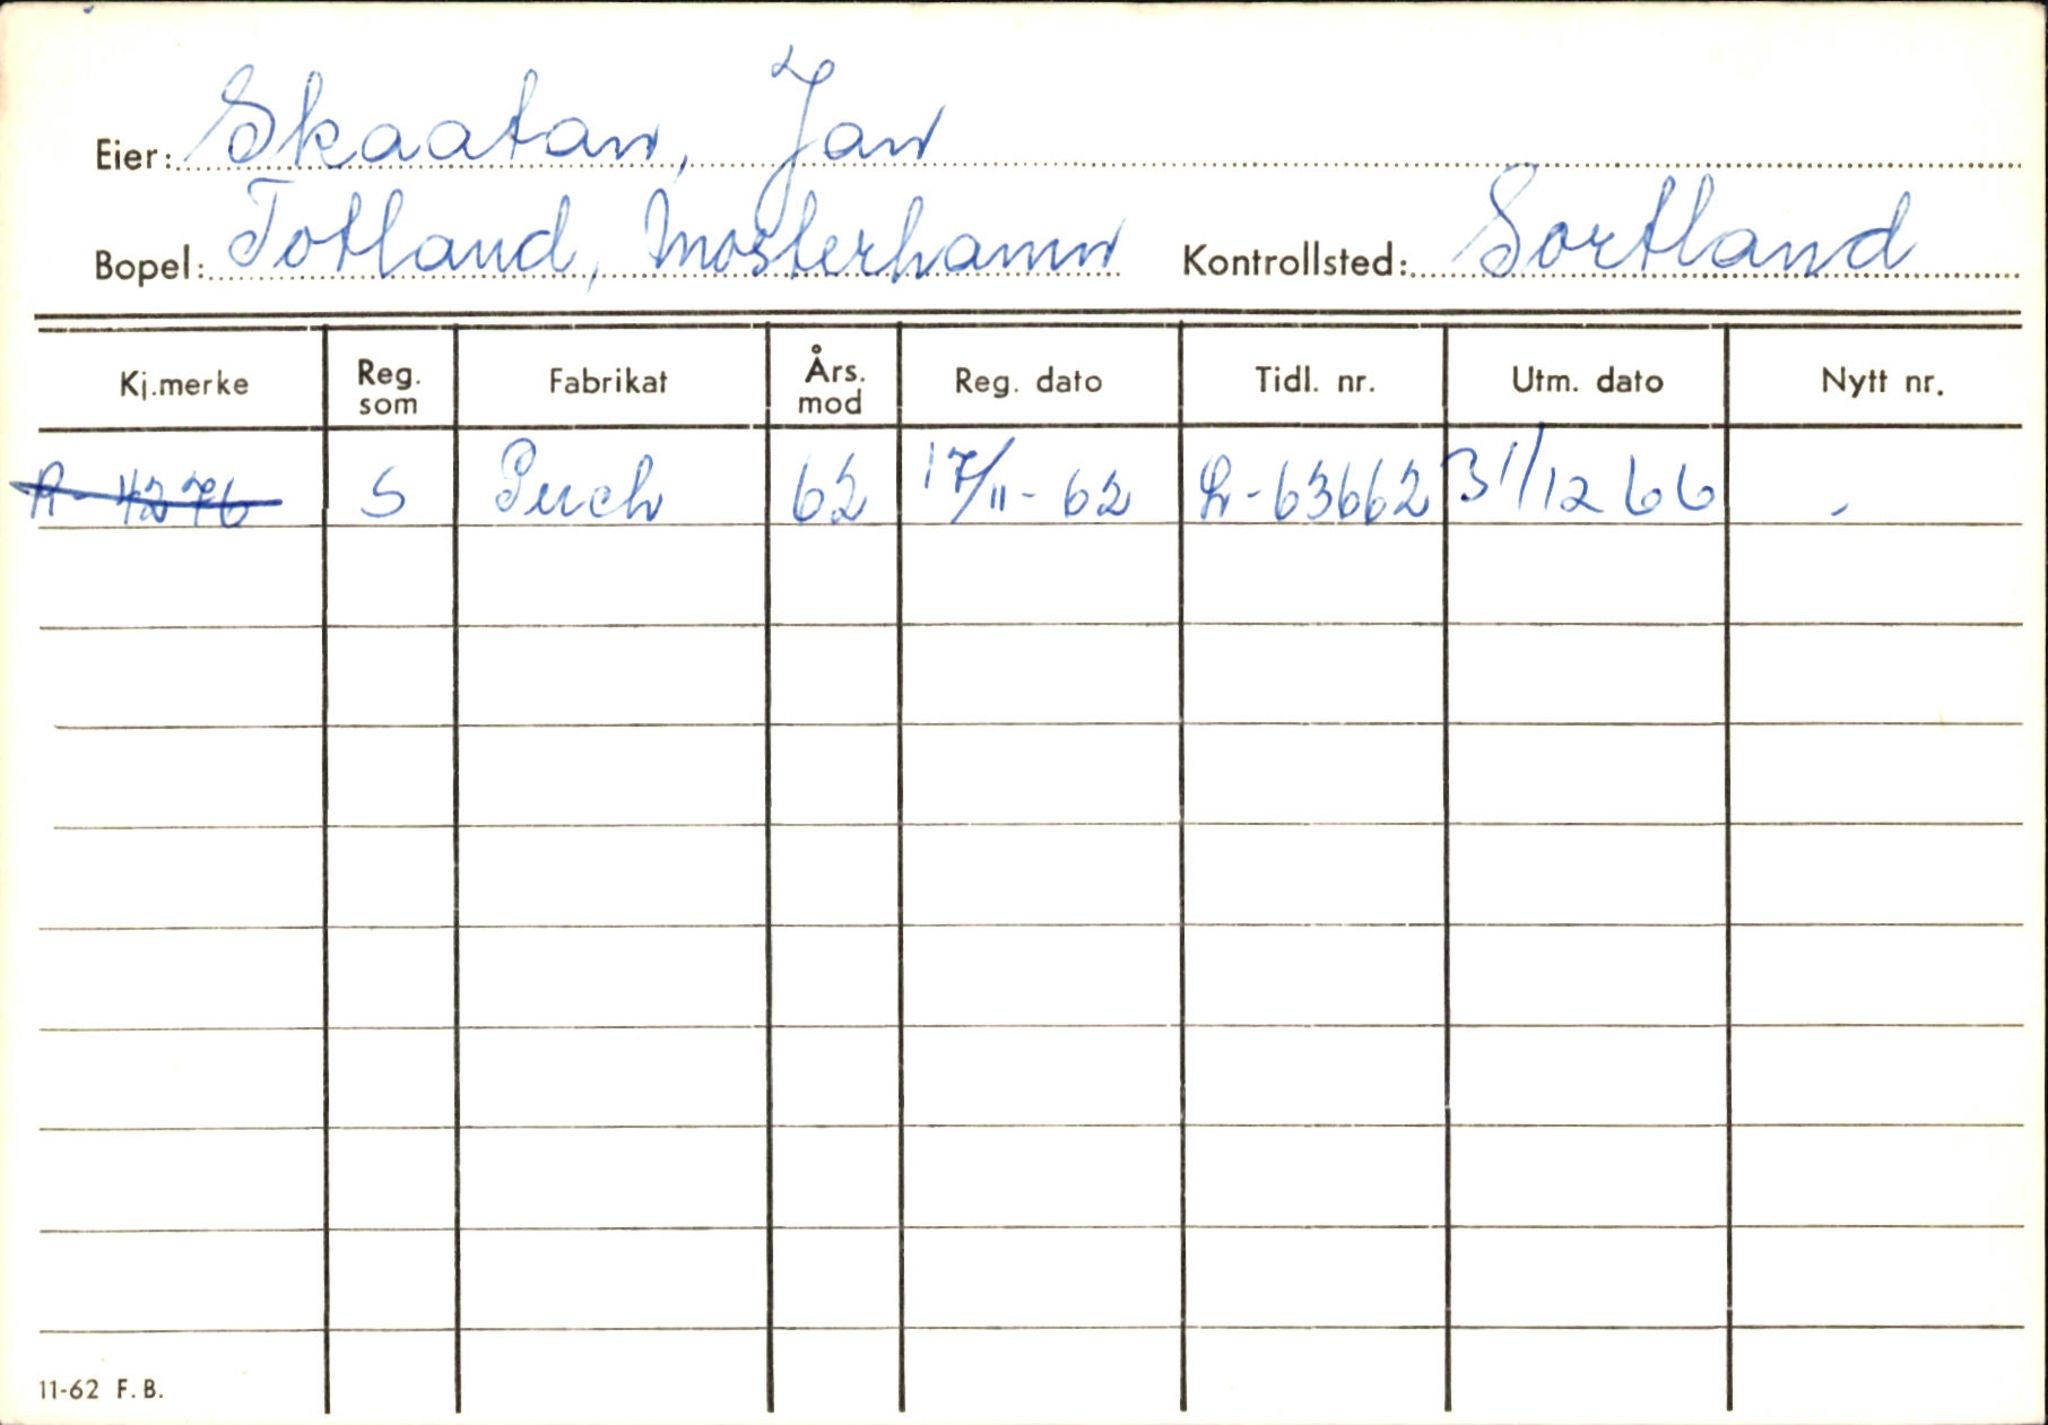 Eier: Skaatan, Jan
Bopel: Totland, Mosterhamn Kontrollsted: Sortland
Kj.merke Reg. som Fabrikat Års. mod Reg. dato Tidl. nr. Utm. dato Nytt nr.
A-4276 S Puch 62 17/11-62 R-63662 31/12 66 -
11-62 F.B.